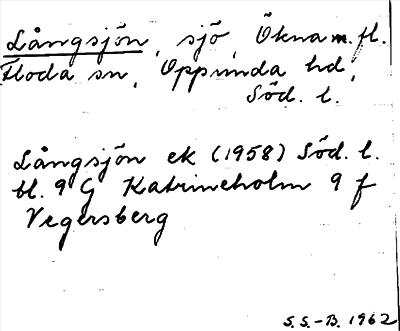 Långsjön, sjö, Ökna m. fl.
Floda sn, Oppunda hd,
Söd. l.
Långsjön ek (1958) Söd. l.
bl. 9 G Katrineholm 9 f
Vegersberg
S.S.-B. 1962